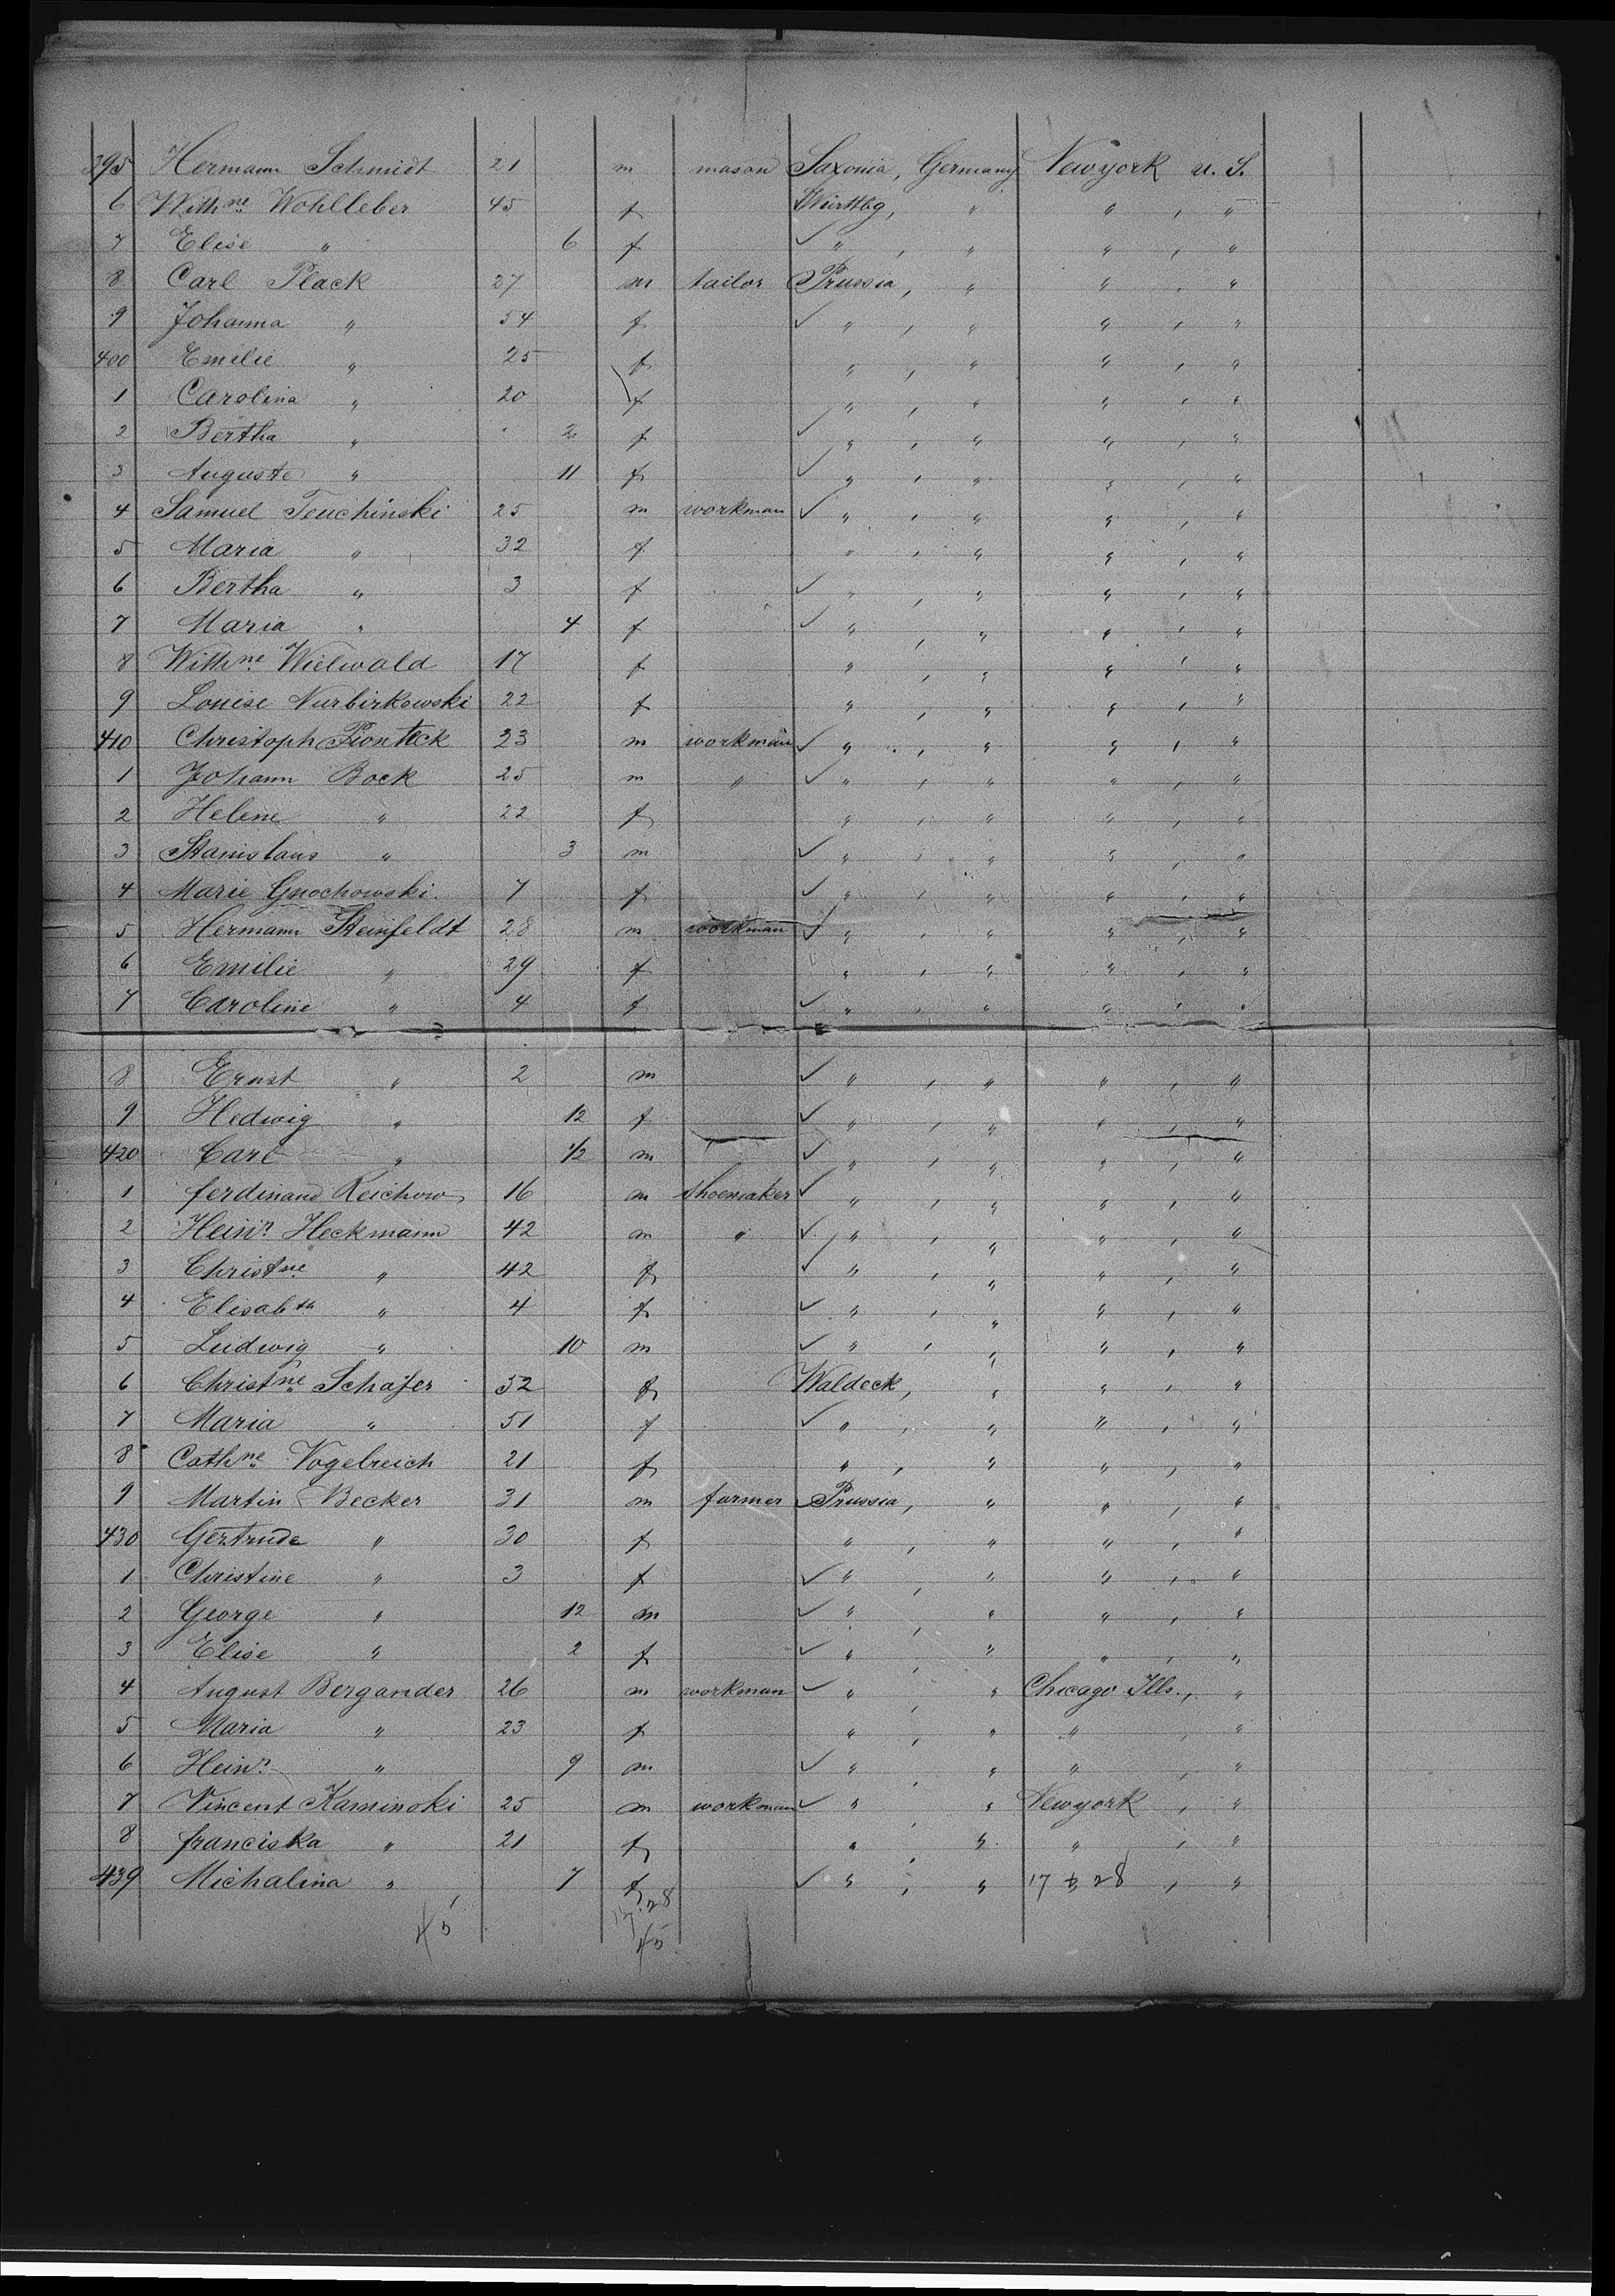 395 Hermann Schmidt 21 m mason Saxonia, Germany Newyork U. S.
6 Wilhne Wohlleber 45 f Württbg, " " , "
7 Elise " 6 f ✓ " , " " , "
8 Carl Plack 27 m tailor Prussia, " " , "
9 Johanna " 54 f ✓ " , " " , "
400 Emilie " 25 f " , " " , "
1 Carolina " 20 f " , " " , "
2 Bertha " 2 f ✓ " , " " , "
3 Auguste " 11 f ✓ " , " " , "
4 Samuel Teuchinski 25 m workman ✓ " , " " , "
5 Maria " 32 f " , " " , "
6 Bertha " 3 f ✓ " , " " , "
7 Maria " 4 f ✓ " , " " , "
8 Wilhne Wielwald 17 f " , " " , "
9 Louise Nurbirkowski 22 f " , " " , "
410 Christoph Pionteck 23 m workman ✓ " , " " , "
1 Johann Bock 25 m " ✓ " , " " , "
2 Helene " 22 f " , " " , "
3 Stanislaus " 3 m ✓ " , " " , "
4 Marie Gnochowski. 7 f ✓ " , " " , "
5 Hermann Steinfeldt 28 m workman ✓ " , " " , "
6 Emilie " 29 f " , " " , "
7 Caroline " 4 f ✓ " , " " , "
8 Ernst " 2 m ✓ " , " " , "
9 Hedwig " 12 f ✓ " , " " , "
420 Carl " 1/2 m ✓ " , " " , "
1 ferdinand Reichow 16 m shoemaker ✓ " , " " , "
2 Heinr. Heckmann 42 m " ✓ " , " " , "
3 Christne " 42 f ✓ " , " " , "
4 Elisabth " 4 f ✓ " , " " , "
5 Ludwig " 10 m ✓ " , " " , "
6 Christne Schafer 52 f Waldeck, " " , "
7 Maria " 51 f ✓ " , " " , "
8 Cathne Vogelreich 21 f " , " " , "
9 Martin Becker 31 m farmer Prussia, " " , "
430 Gertrude " 30 f " , " " , "
1 Christine " 3 f ✓ " , " " , "
2 George " 12 m ✓ " , " " , "
3 Elise " 2 f ✓ " , " " , "
4 August Bergander 26 m workman ✓ " , " Chicago Ills., "
5 Maria " 23 f " , " " , "
6 Heinr. " 9 m ✓ " , " " , "
7 Vincent Kaminski 25 m workman ✓ " , " Newyork , "
8 franciska " 21 f " , " " , "
439 Michalina " 7 f ✓ " , " 17 28 , "
17.28
45 45